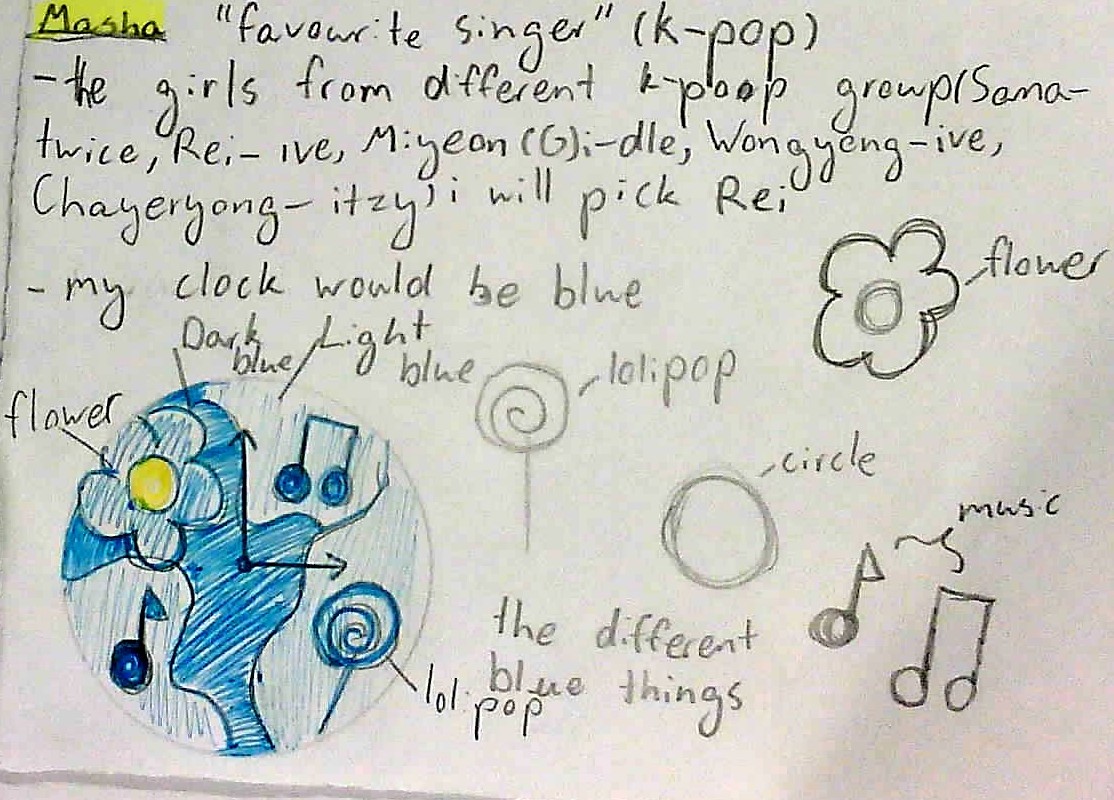 Masha "favourite singer" (k-pop)
-the girls from different k-poop group(Sana-
twice, Rei- ive, Miyeon (G)i-dle, Wongyeng-ive,
Chayeryong- itzy) i will pick Rei
- my clock would be blue
flower
Dark blue
Light blue
lolipop
flower
circle
music
the different
blue things
lolipop